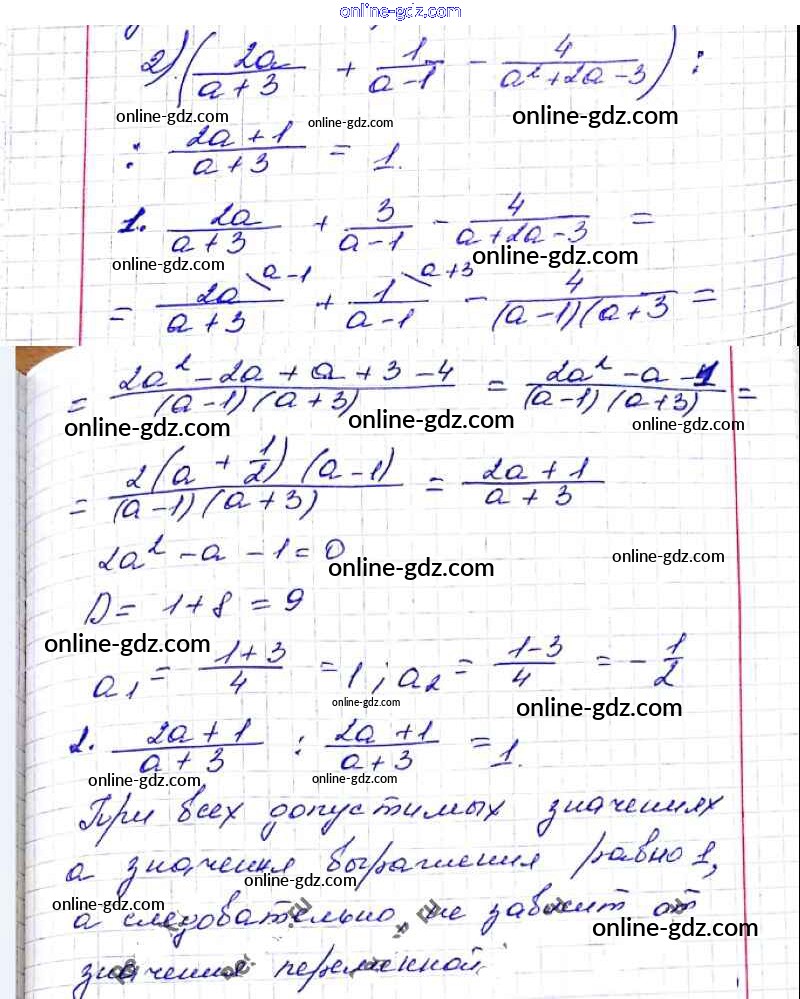 online-gdz.com
2) (2a/(a+3) + 1/(a-1) - 4/(a²+2a-3)) :
online-gdz.com online-gdz.com online-gdz.com
: (2a+1)/(a+3) = 1.
1. 2a/(a+3) + 3/(a-1) - 4/(a+2a-3) =
online-gdz.com online-gdz.com
= 2a\a-1/(a+3) + 1\a+3/(a-1) - 4/((a-1)(a+3) =
= (2a²-2a+a+3-4)/((a-1)(a+3)) = (2a²-a-1)/((a-1)(a+3)) =
online-gdz.com online-gdz.com online-gdz.com
= 2(a+1/2)(a-1)/((a-1)(a+3)) = (2a+1)/(a+3)
2a²-a-1=0
online-gdz.com online-gdz.com
D= 1+8=9
online-gdz.com
a₁= (1+3)/4 =1; a₂= (1-3)/4 = -1/2
online-gdz.com online-gdz.com
2. (2a+1)/(a+3) : (2a+1)/(a+3) =1.
online-gdz.com online-gdz.com
При всех допустимых значениях
а значения выражения равно 1,
online-gdz.com
online-gdz.com
а следовательно, не зависит от
online-gdz.com
значения переменной.